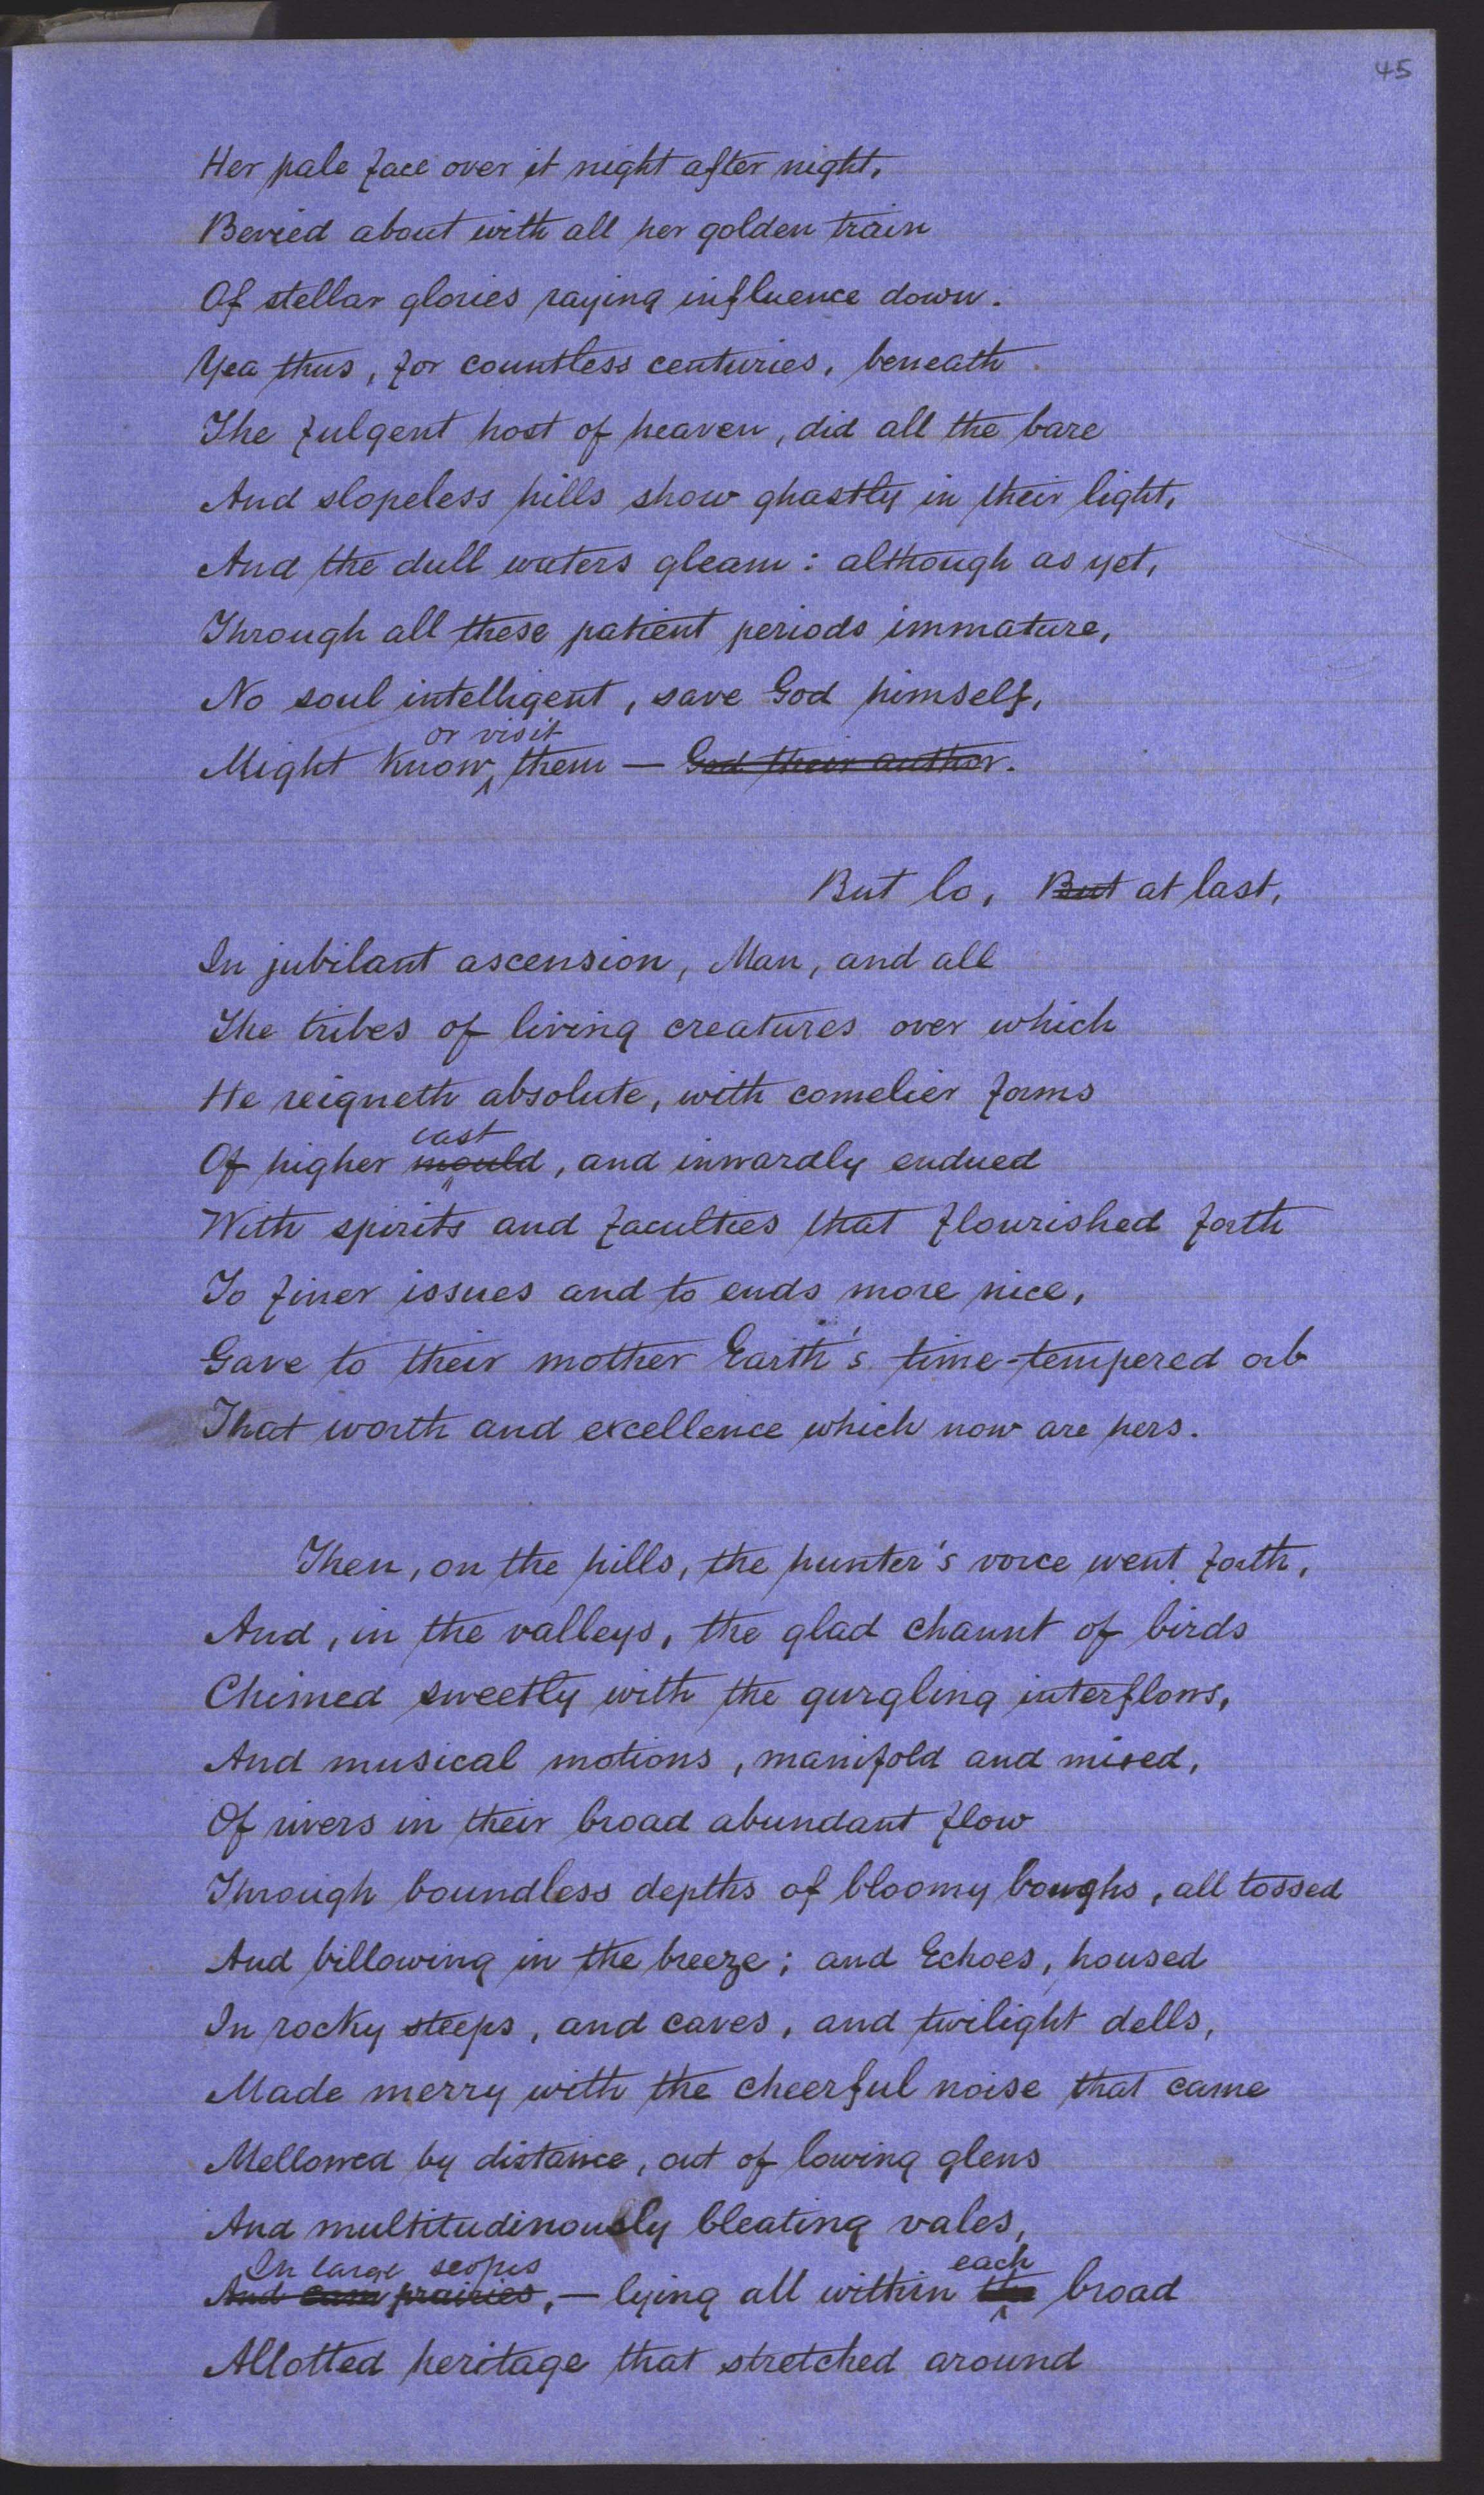 45
Her pale face over it night after night,
Bevied about with all her golden train
Of stellar glories raying influence down.
Yea thus, for countless centuries, beneath
The fulgent host of heaven, did all the bare
And slopeless hills show ghastly in their light,
And the dull waters gleam: although as yet,
Through all these patient periods immature,
No soul intelligent, save God himself,
or visit
Might know, them — God their author.
But lo, But at last,
In jubilant ascension, Man, and all
The tribes of living creatures over which
He reigneth absolute, with comelier forms
cast
Of higher mould, and inwardly endued
With spirits and faculties that flourished forth
To finer issues and to ends more nice,
Gave to their mother Earth's time-tempered orb
That worth and excellence which now are hers.
Then, on the hills, the hunter's voice went forth,
And, in the valleys, the glad chaunt of birds
Chimed sweetly with the gurgling interflows,
And musical motions, manifold and mixed,
Of rivers in their broad abundant flow
Through boundless depths of bloomy boughs, all tossed
And billowing in the breeze; and Echoes, housed
In rocky steeps, and caves, and twilight dells,
Made merry with the cheerful noise that came
Mellowed by distance, out of lowing glens
And multitudinously bleating vales,
In large scopes each
And prairies, — lying all within the broad
Allotted heritage that stretched around